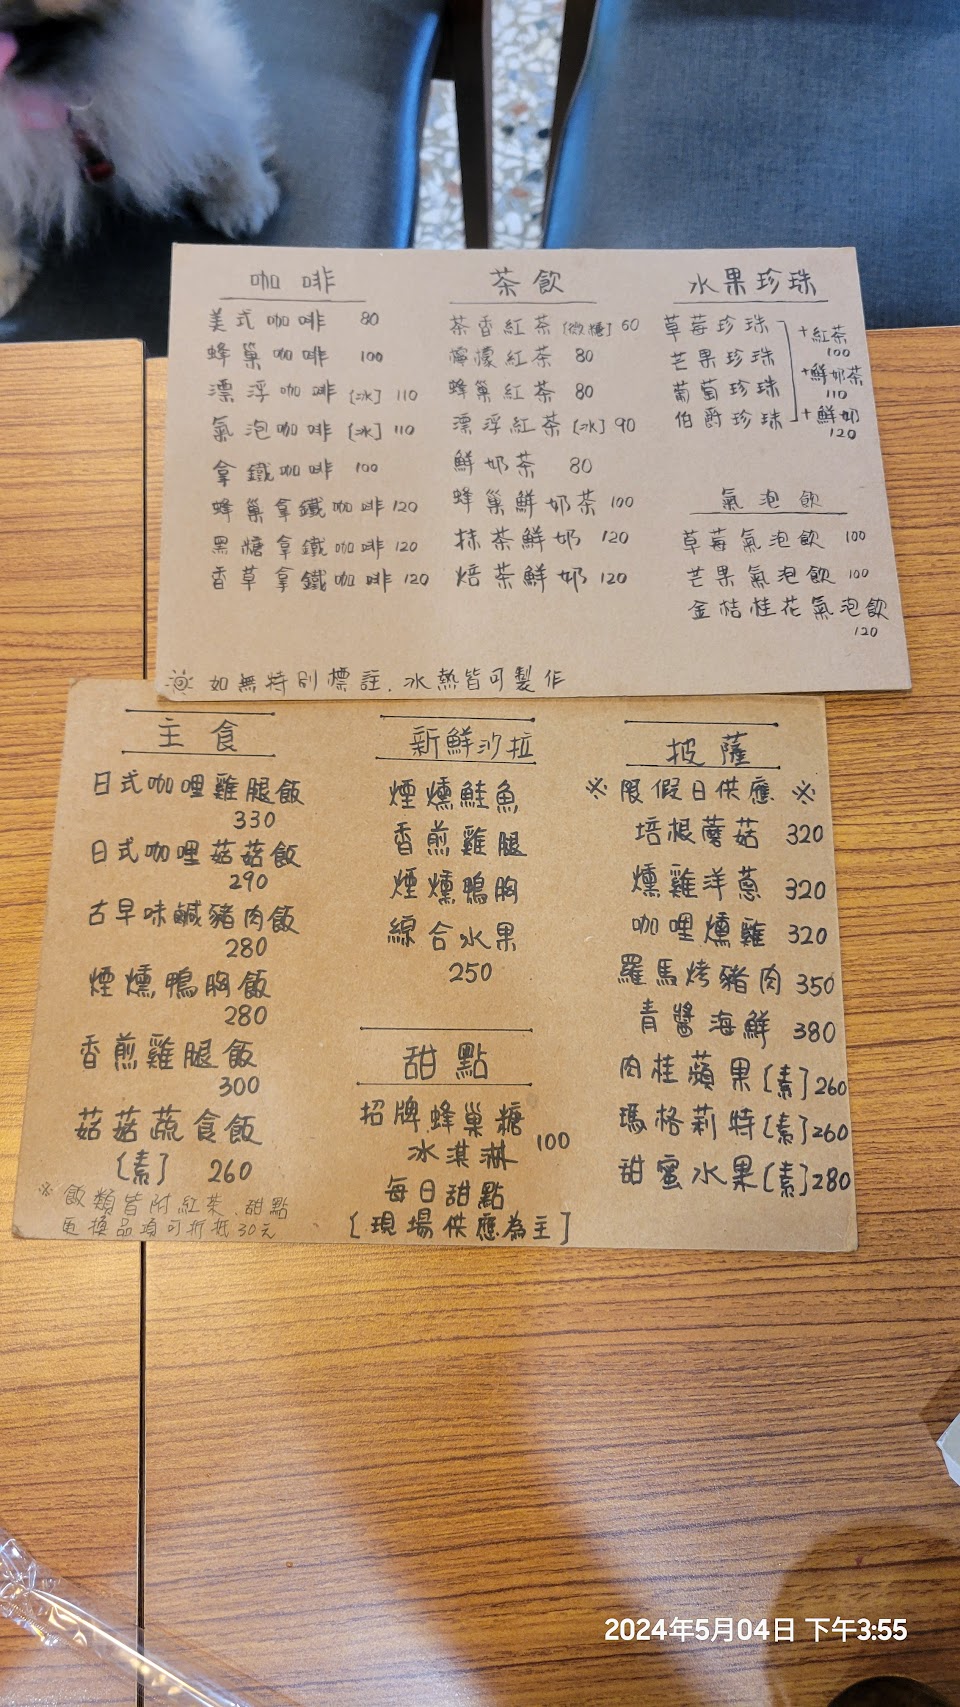 咖啡
美式咖啡 80
蜂巢咖啡 100
漂浮咖啡[冰] 110
氣泡咖啡[冰] 110
拿鐵咖啡 100
蜂巢拿鐵咖啡 120
黑糖拿鐵咖啡 120
香草拿鐵咖啡 120
茶飲
茶香紅茶[微糖] 60
檸檬紅茶 80
蜂巢紅茶 80
漂浮紅茶[冰] 90
鮮奶茶 80
蜂巢鮮奶茶 100
抹茶鮮奶 120
焙茶鮮奶 120
水果珍珠
草莓珍珠
芒果珍珠
葡萄珍珠
伯爵珍珠
+紅茶
100
+鮮奶茶
110
+鮮奶
120
氣泡飲
草莓氣泡飲 100
芒果氣泡飲 100
金桔桂花氣泡飲
120
如無特別標註.冰熱皆可製作
主食
日式咖哩雞腿飯
330
日式咖哩菇菇飯
290
古早味鹹豬肉飯
280
煙燻鴨胸飯
280
香煎雞腿飯
300
菇菇蔬食飯
[素] 260
※飯類皆附紅茶.甜點
更換品項可折抵30元
新鮮沙拉
煙燻鮭魚
香煎雞腿
煙燻鴨胸
綜合水果
250
甜點
招牌蜂巢糖
冰淇淋 100
每日甜點
[現場供應為主]
披薩
※限假日供應※
培根蘑菇 320
燻雞洋蔥 320
咖哩燻雞 320
羅馬烤豬肉 350
青醬海鮮 380
肉桂蘋果[素]260
瑪格莉特[素]260
甜蜜水果[素]280
2024年5月04日 下午3:55